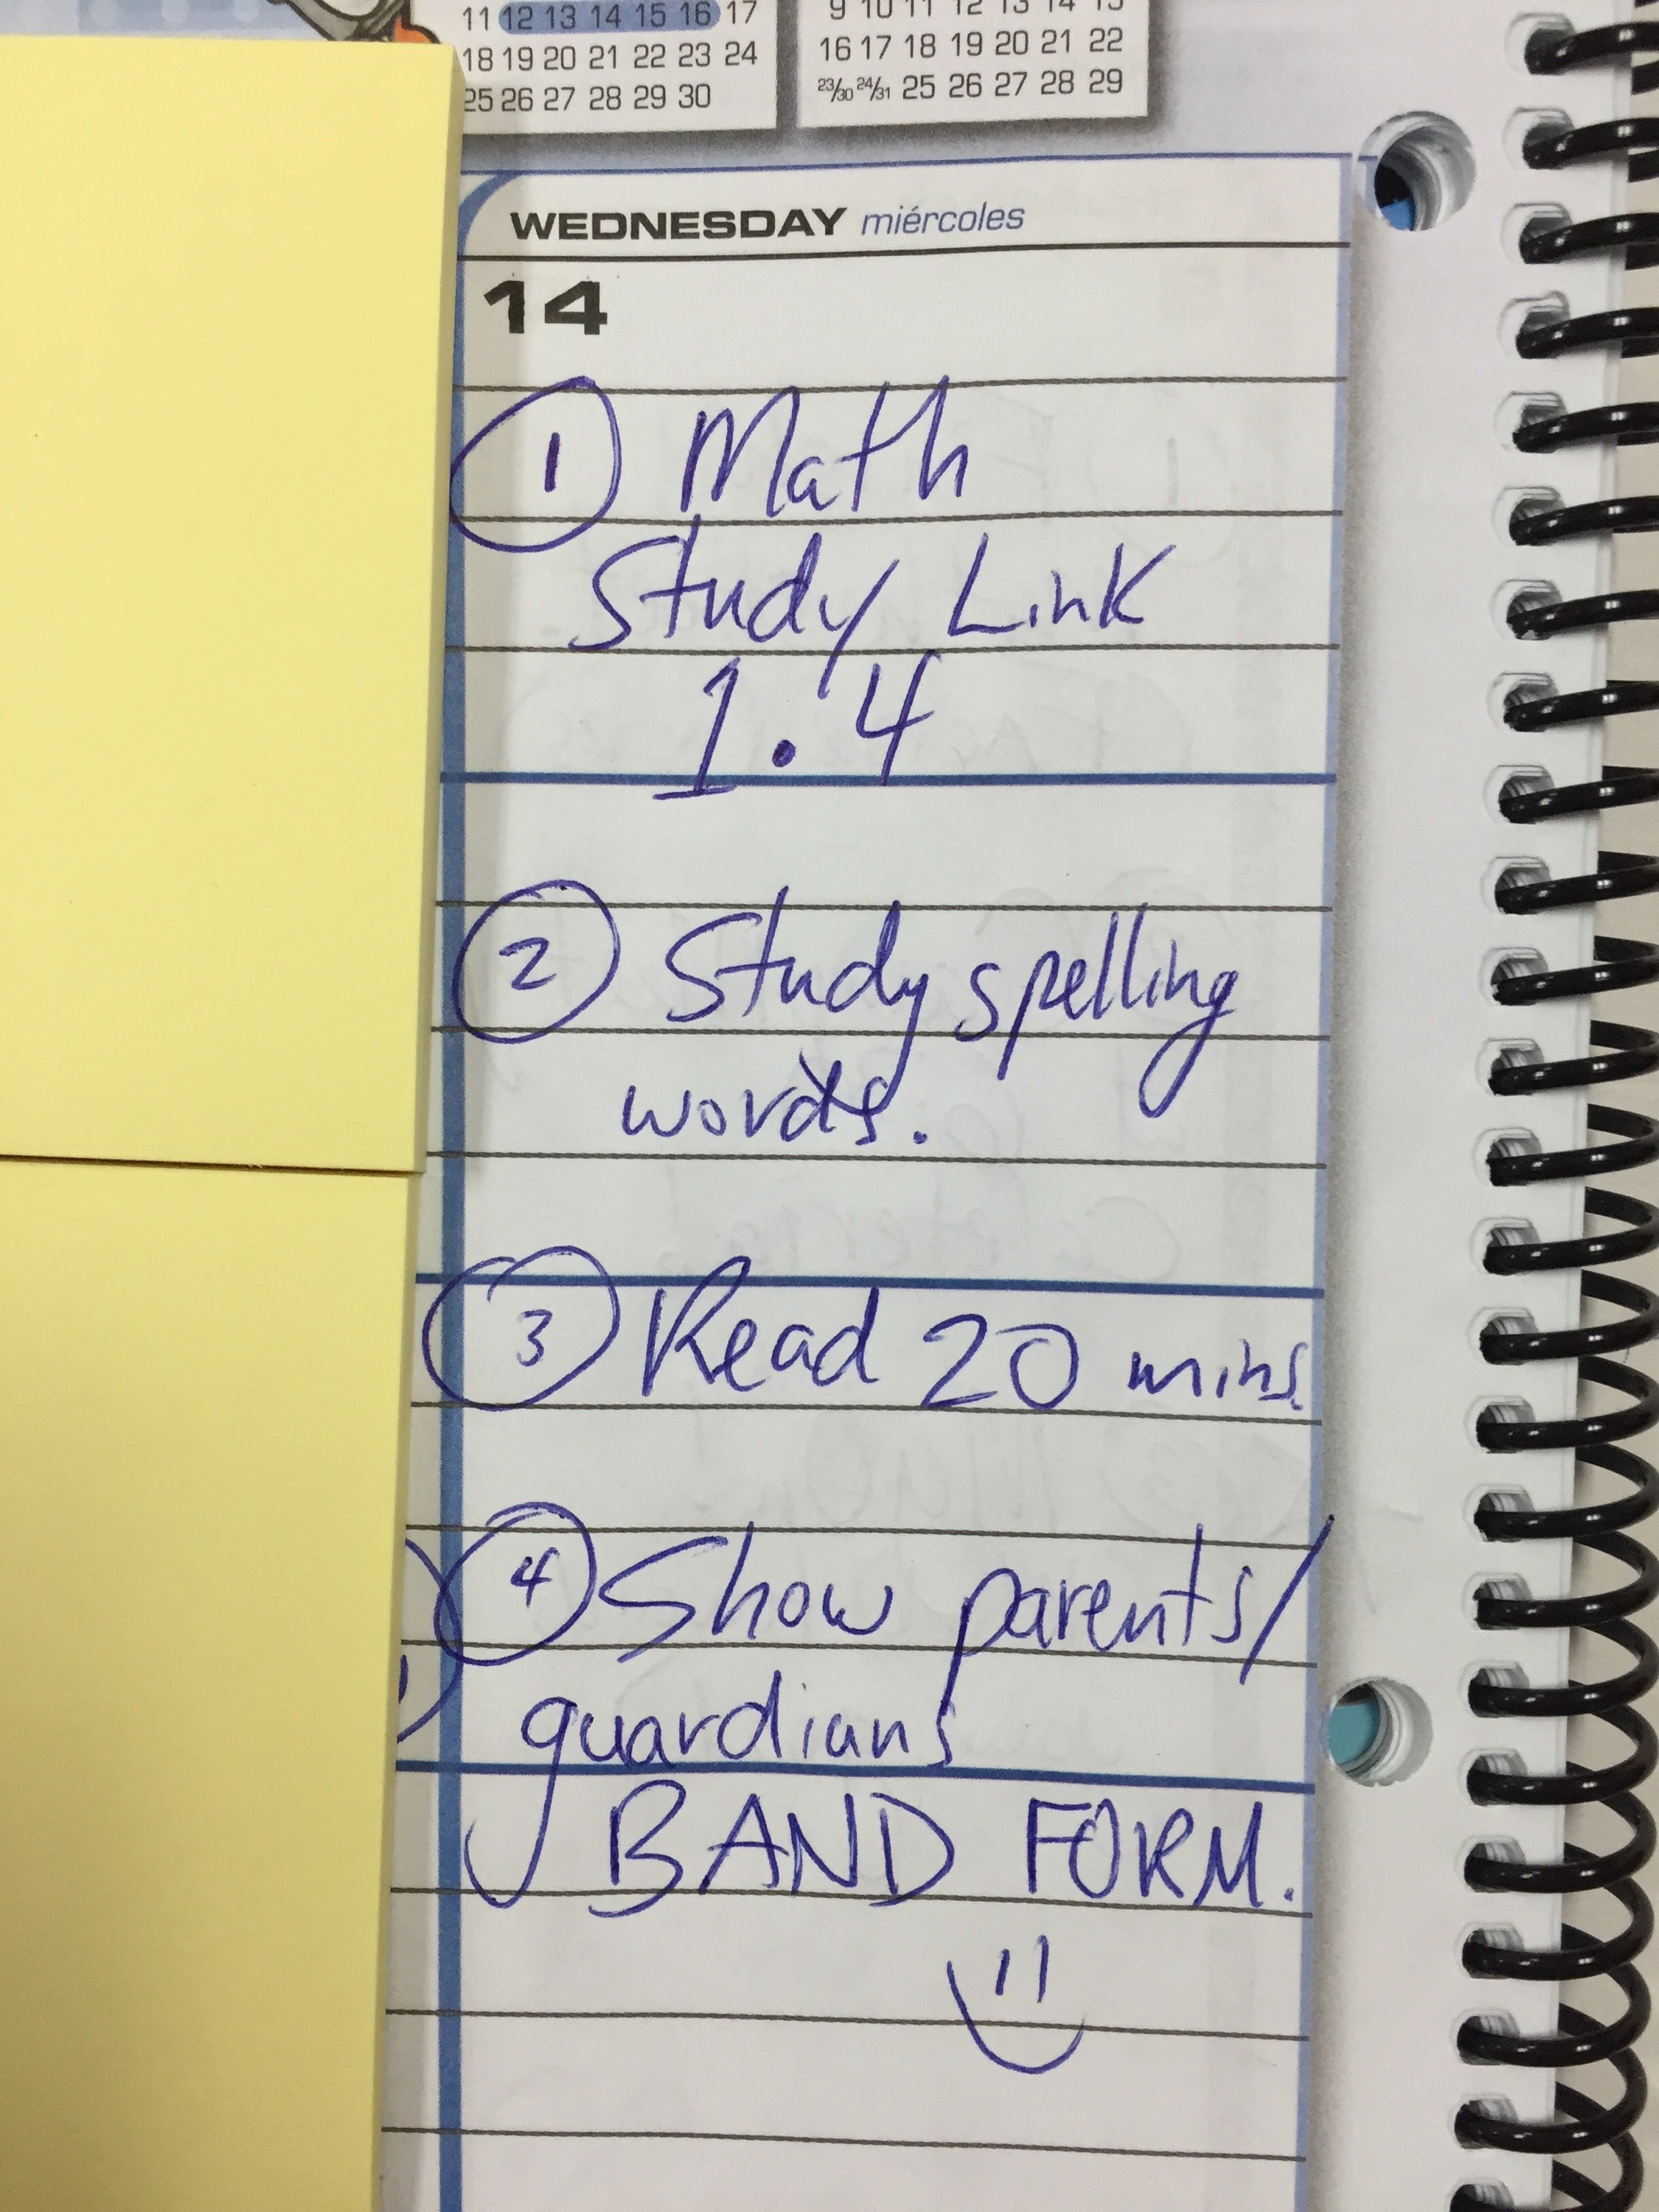 11 12 13 14 15 16 17
18 19 20 21 22 23 24
25 26 27 28 29 30
9 10 11 12 13 14 15
16 17 18 19 20 21 22
23/30 24/31 25 26 27 28 29
WEDNESDAY miércoles
14
1 Math
Study Link
1.4
2 Study spelling
words.
3 Read 20 mins.
4 Show parents/
guardians
BAND FORM.